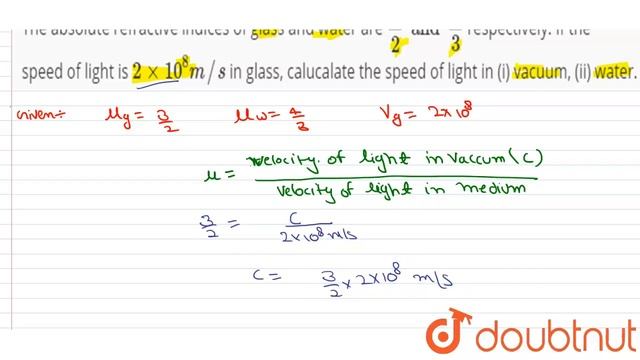 The absolute refractive indices of glass and water are 2 and 3 respectively. If the
speed of light is 2 × 10^8 m/s in glass, calucalate the speed of light in (i) vacuum, (ii) water.
Given:- μg = 3/2 μw = 4/3 Vg = 2×10^8
μ = velocity of light in vaccum (c) / velocity of light in medium
3/2 = c / 2×10^8 m/s
c = 3/2 × 2×10^8 m/s
doubtnut